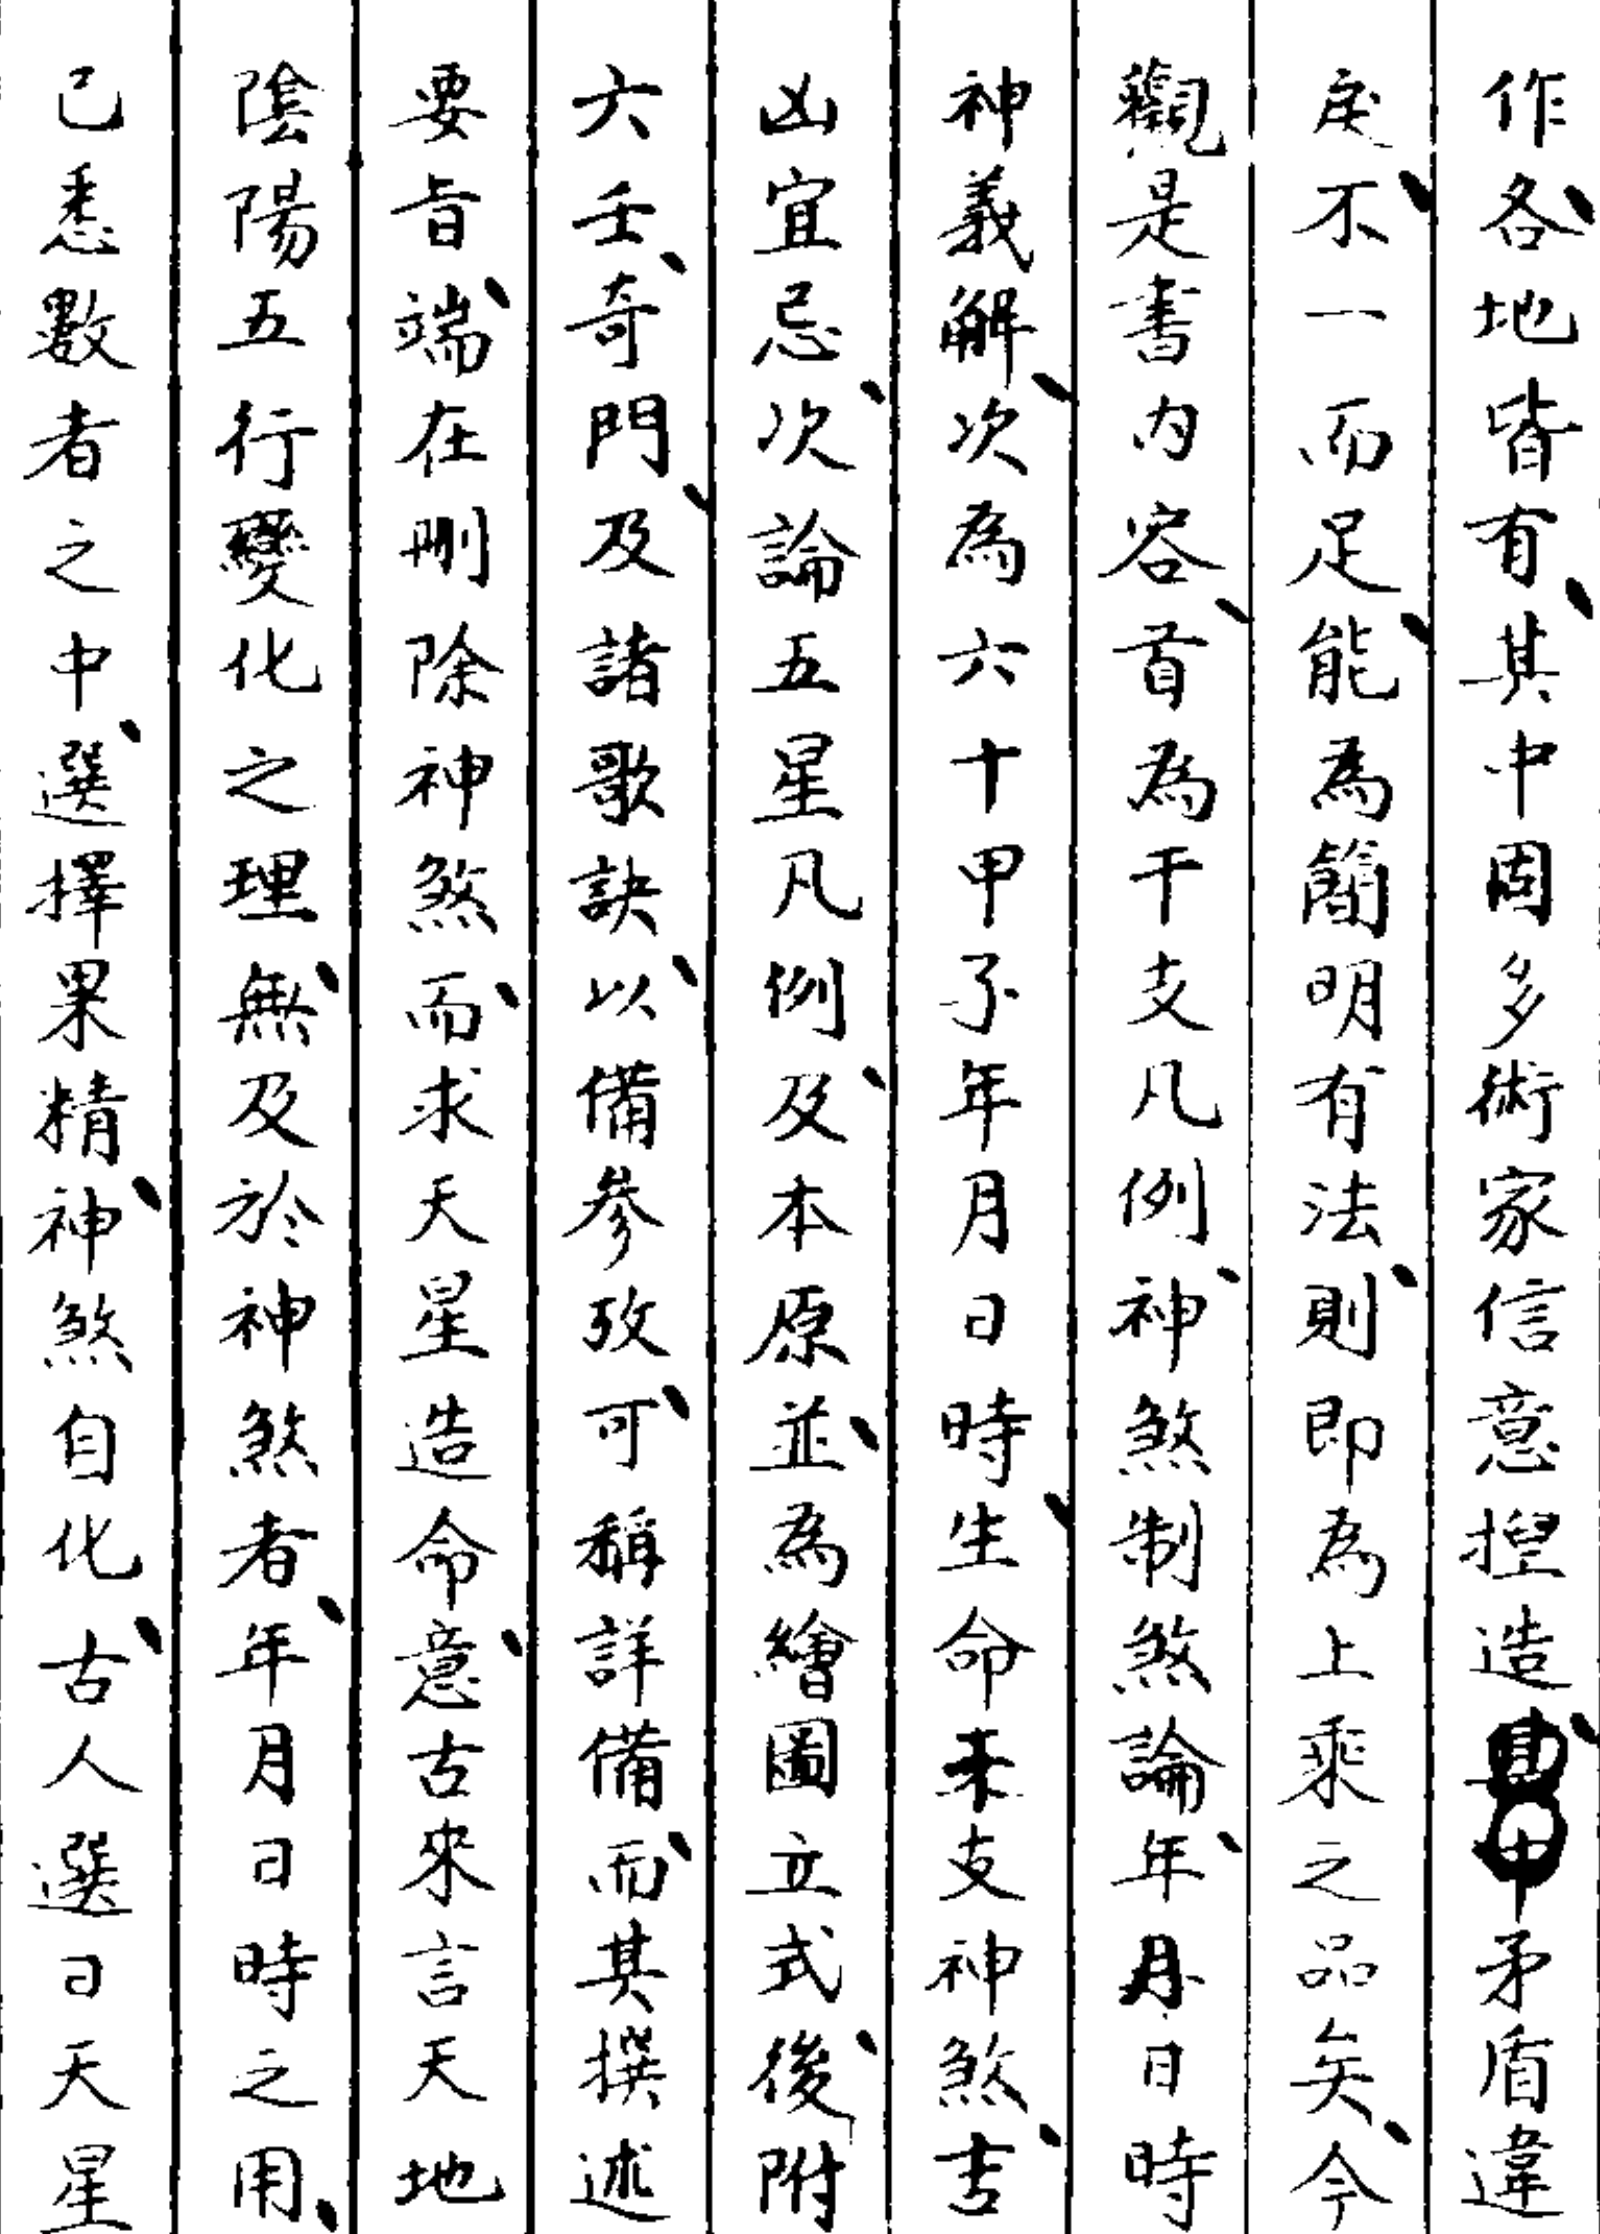 作各地皆有、其中固多術家信意捏造、其中矛盾違
戾、不一而足、能為簡明有法、則即為上乘之品矣、今
觀是書內容、首為干支凡例、神煞制煞論、年月日時
神義解、次為六十甲子年月日時、生命禾支神煞、吉
凶宜忌、次論五星凡例、及本原、並為繪圖立式、後附
六壬、奇門、及諸歌訣、以備參攷、可稱詳備、而其撰述
要旨、端在刪除神煞、而求天星造命、意古來言天地
陰陽五行變化之理、無及於神煞者、年月日時之用、
已悉數者之中、選擇果精、神煞自化、古人選日天星